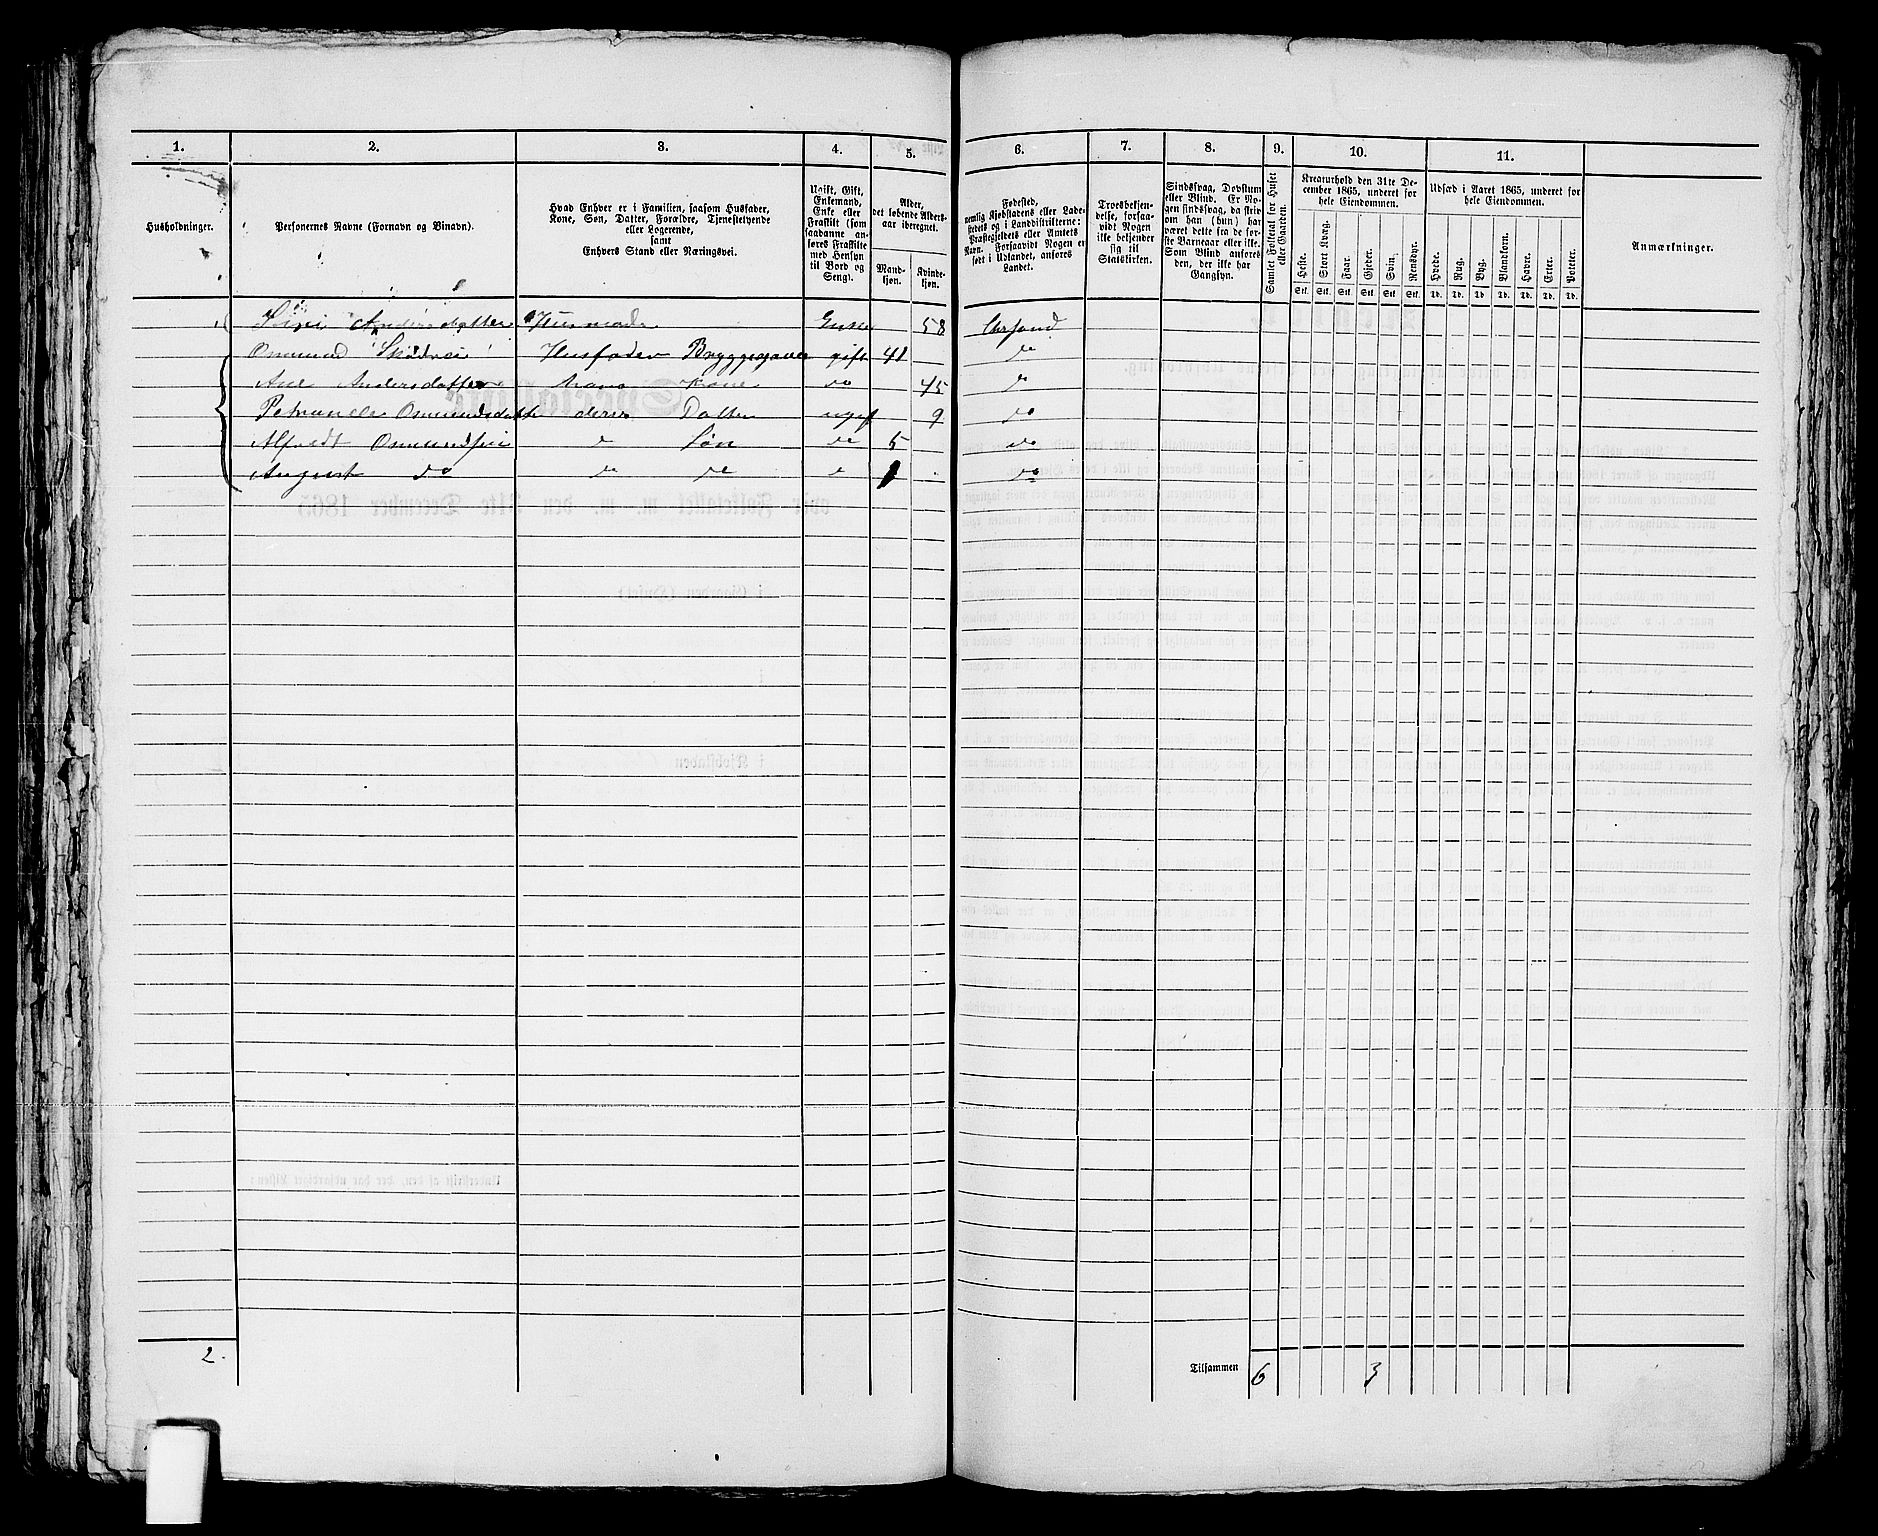 1. 2. 3. 4. 5. 6. 7. 8. 9. 10. 11.
Husholdninger.
Personernes Navne (Fornavn og Binavn).
Hvad Enhver er i Familien, saasom Husfader,
Kone, Søn, Datter, Forældre, Tjenestetyende
eller Logerende,
samt
Enhvers Stand eller Næringsvei.
Ugift, Gift,
Enkemand,
Enke eller
Fraskilt (som
saadanne an-
føres Fraskilte
med Hensyn
til Bord og
Seng).
Alder,
det løbende Alders-
aar iberegnet.
Mand-
kjøn.
Kvinde-
kjøn.
Fødested,
nemlig Kjøbstadens eller Lade-
stedets og i Landdistrikterne:
Præstegjeldets eller Amtets
Navn. Forsaavidt Nogen er
født i Udlandet, anføres
Landet.
Troesbekjen-
delse, forsaa-
vidt Nogen
ikke bekjender
sig til
Statskirken.
Sindssvag, Døvstum
eller Blind. Er No-
gen sindssvag, da skriv
om han (hun) har
været dette fra de før-
ste Barneaar eller ikke.
Som Blind anføres
den, der ikke har
Gangsyn.
Samlet Folketal for Huset
eller Gaarden.
Kreaturhold den 31te De-
cember 1865, underet for
hele Eiendommen.
Heste. Stort Kvæg. Faar. Gjeder. Svin. Rensdyr.
Stk. Stk. Stk. Stk. Stk. Stk.
Udsæd i Aaret 1865, underet for
hele Eiendommen.
Hvede. Rug. Byg. Blandkorn. Havre. Erter. Poteter.
Td. Td. Td. Td. Td. Td. Td.
Anmærkninger.
Siri Andersdatter Husmoder Enke 58 Chrsand
Osmund Skødvei Husfader gift 41 do
Ane Andersdatter hans Kone do 45 do
Osmundsdatter deres Datter ugift 9 do
Osmundsen do Søn do 5 do
August do do do do 1 do
2.
Tilsammen 6 3